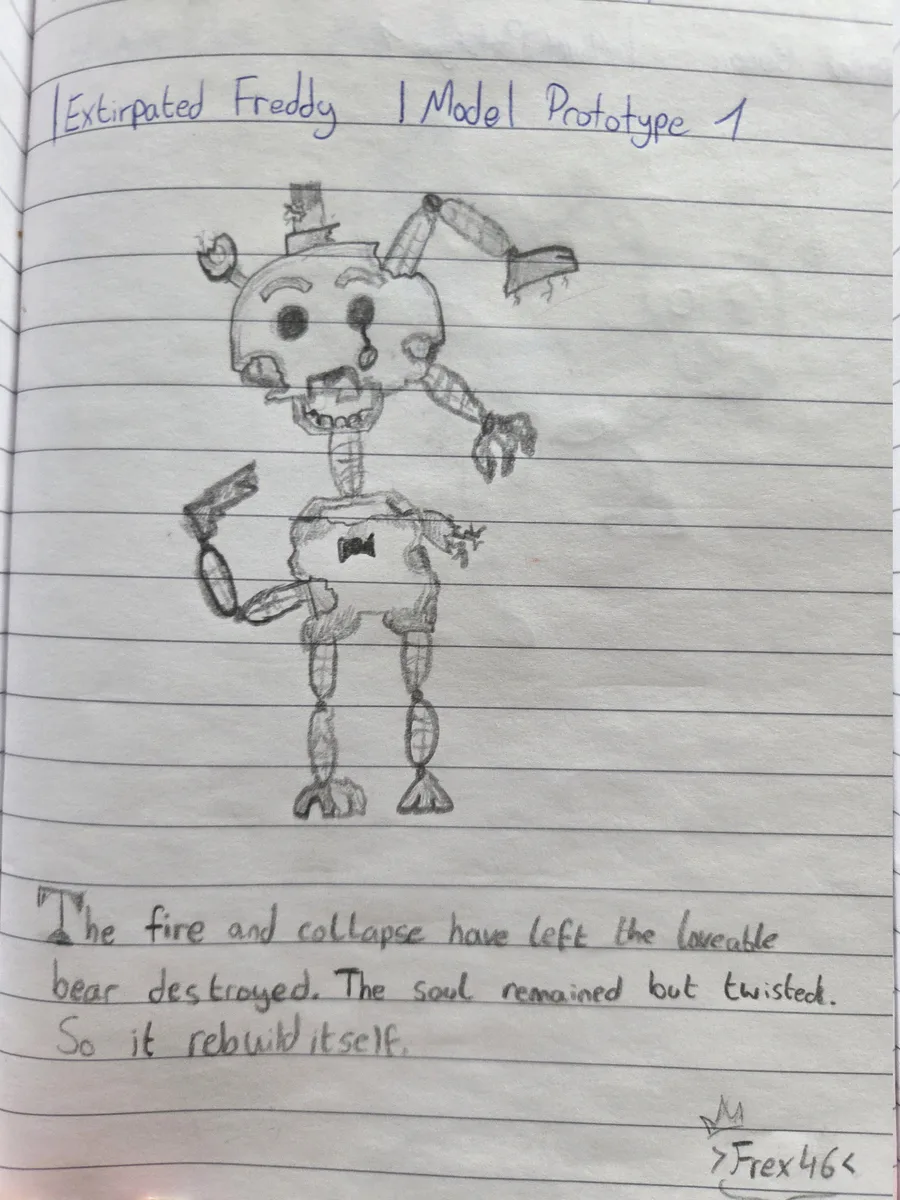 |Extirpated Freddy | Model Prototype 1
The fire and collapse have left the loveable
bear destroyed. The soul remained but twisted.
So it rebuild itself.
>Frex46<